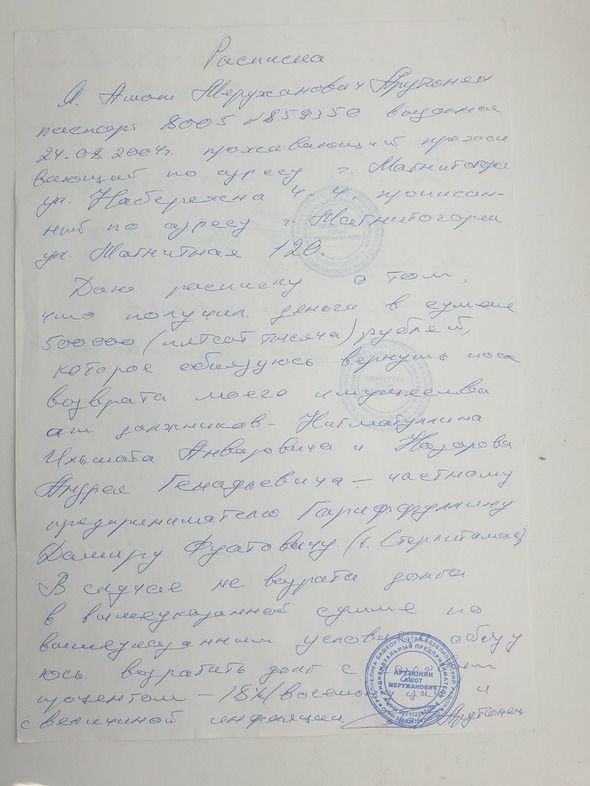 Расписка
Я, Ашот Меружанович Арутюнян
паспорт 8005 №859350 выданная
24.08.2004г. проживающий прожи
вающий по адресу г. Магнитогорс
ул. Набережна 4, 4, прописан-
ный по адресу г. Магнитогорск
ул. Магнитная 120.
Даю расписку о том,
что получил деньги в сумме
500000 (пятсот тысяча) рублей,
которое обязуюсь вернуть после
возврата моего имущества
от должников - Нигматуллина
Ильшата Анваровича и Назарова
Андрея Генадьевича - частному
предпринимателю Гариффуллину
Дамиру Фуатовичу. (г. Стерлитамак)
В случае не возрата долга
в вышеуказанной сумме по
вышеуказанным условиям обязу
юсь возратить долг с
процентом - 18% и
с величиной инфляции Арутюнян
РЕСПУБЛИКА БАШКОРТОСТАН
ИНДИВИДУАЛЬНЫЙ ПРЕДПРИНИМАТЕЛЬ
АРУТЮНЯН
АШОТ
МЕРУЖАНОВИЧ